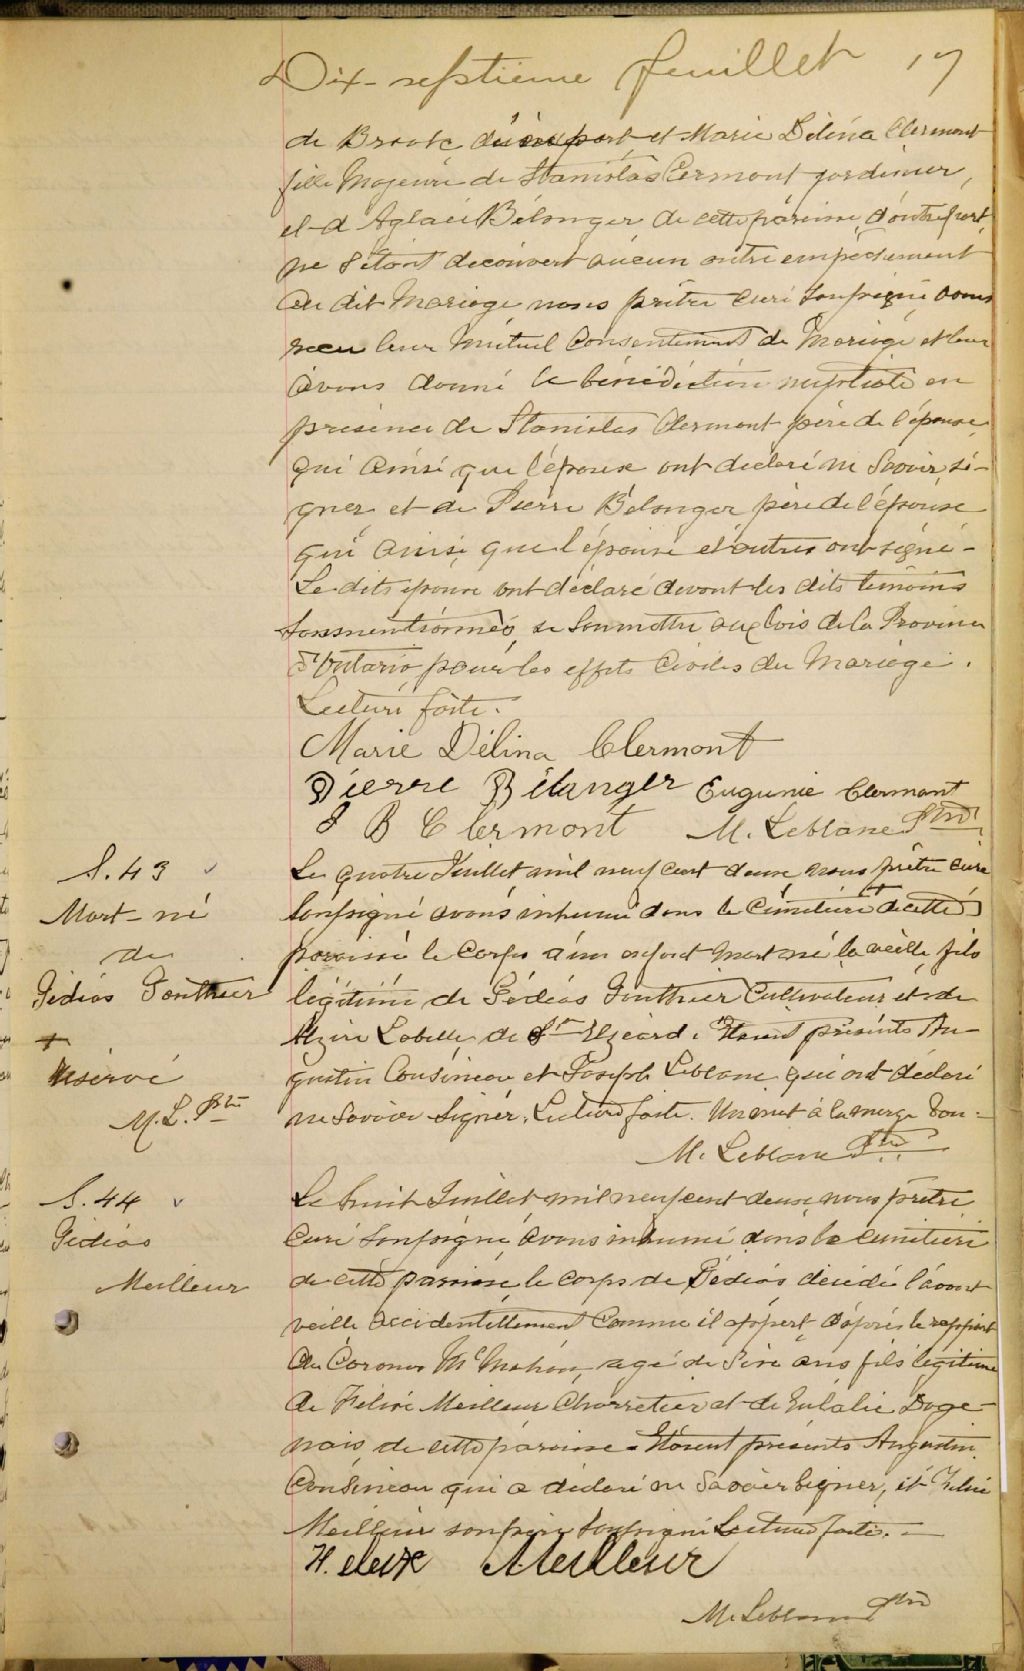 Dix-septième feuillet 17
de d'une part, et Marie Délina Clermont
fille Majeure de Stanislas Clermont jardinier,
et d'Aglaée Bélanger de cette paroisse d'autre part,
ne s'étant découvert aucun autre empêchement
au dit Mariage nous prêtre curé soussigné avons
reçu leur mutuel Consentement de Mariage et leur
avons donné la bénédiction nuptiale en
présence de Stanislas Clermont père de l'épouse,
qui ainsi que l'époux ont déclaré ne savoir si-
gner et de Pierre Bélanger père de l'épouse
qui ainsi que l'épouse et autres ont signé -
Le dits époux ont déclaré devant les dits témoins
sousmentionnés, se soumettre aux lois de la Province
d'Ontario pour les effets Civiles du Mariage.
Lecture faite.
Marie Délina Clermont
Pierre Bélanger Eugenie Clermont
J B Clermont M. Leblanc Ptre
S. 43
Mort-né
de
Gédéos Gouthier
+
réservé
M. L. Ptre
Le quatre Juillet mil neuf cent deux nous prêtre curé
soussigné avons inhumé dans le Cimetière + de cette
paroisse le Corps d'un enfant mort né la veille fils
légitime de Gédéos Gouthier Cultivateur et de
Alzire Labelle de St Elzéard. Etaient présents Au-
gustin Cousineau et Joseph Leblanc qui ont déclaré
ne savoir signer. Lecture faite. Un mot à la marge bon -
M. Leblanc Ptre
S. 44
Gédéos
Meilleur
Le huit Juillet mil neuf cent deux, nous prêtre
Curé soussigné avons inhumé dans le cimetière
de cette paroisse le corps de Gédéos décédé l'avant
veille accidentellement Comme il appert d'après le rapport
du Coroner McMahon, agé de ans fils légitime
de Félix Meilleur Charretier et de Eulalie Dage-
nais de cette paroisse - Etaient présents Augustin
Cousineau qui a déclaré ne savoir signer, et Félix
Meilleur son père soussigné Lecture faite. -
Meilleur
M. Leblanc Ptre